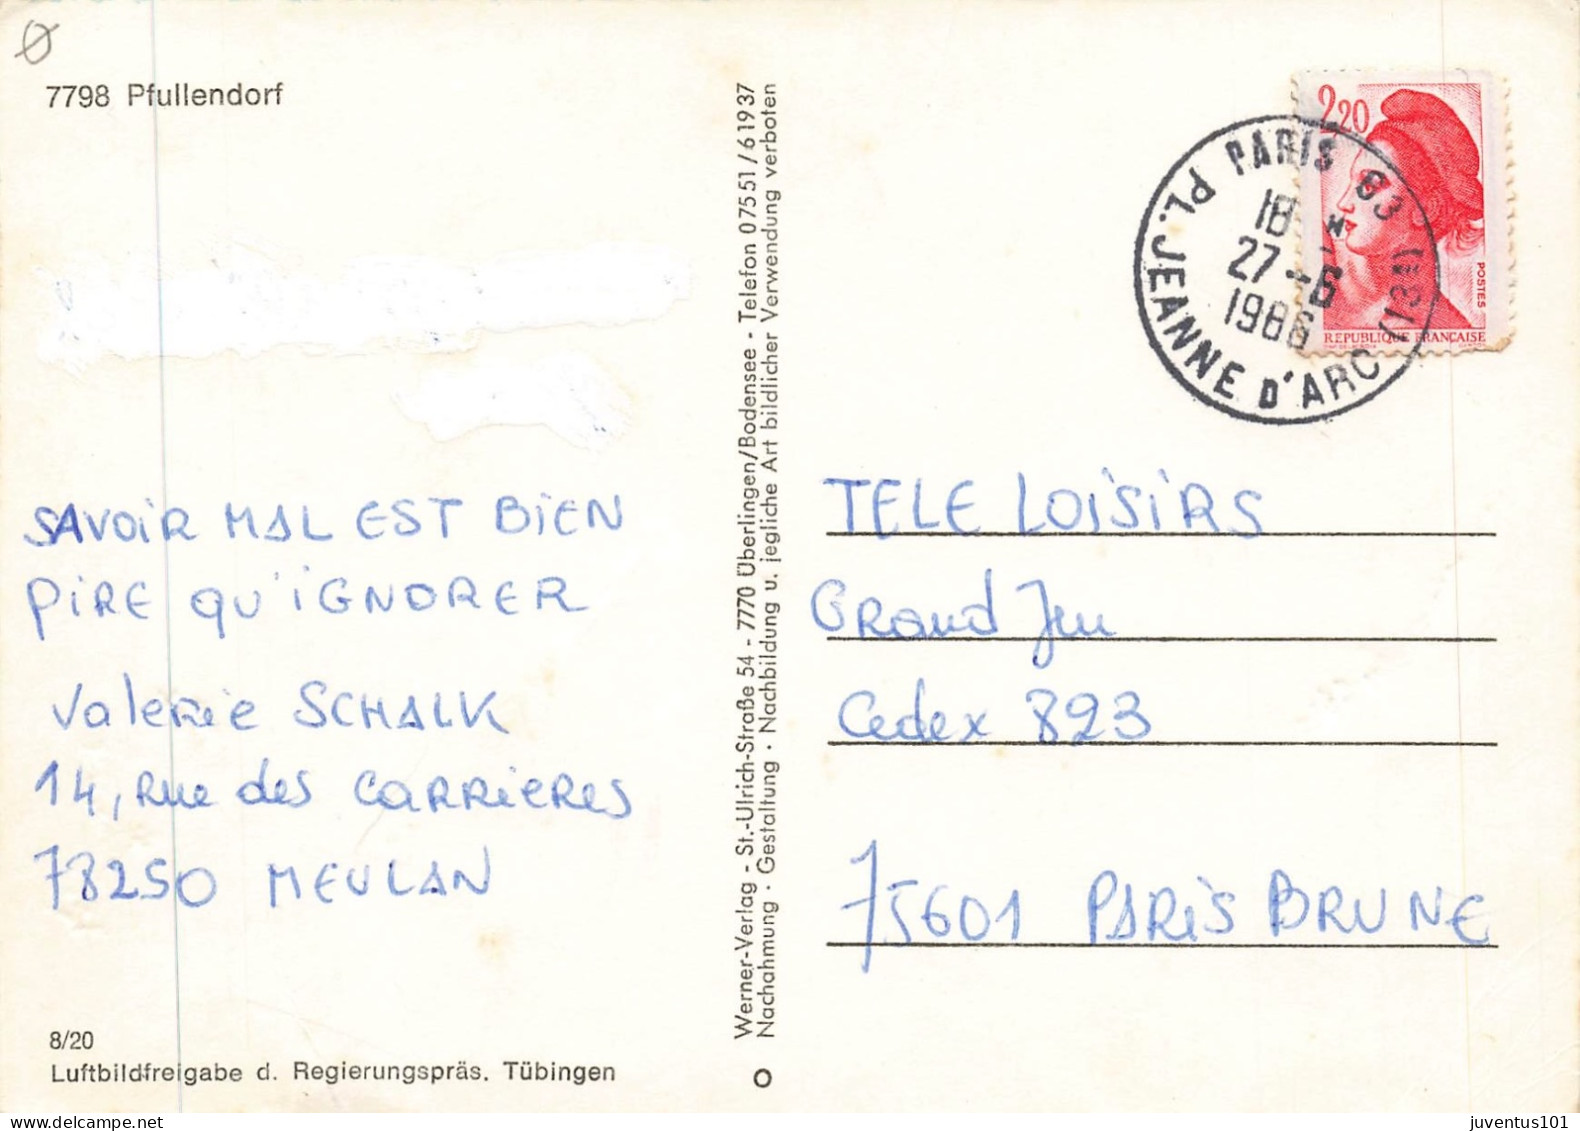 7798 Pfullendorf
SAVOIR MAL EST BIEN
PIRE QU'IGNORER
Valerie SCHALK
14, Rue des CARRIERES
78250 MEULAN
8/20
Luftbildfreigabe d. Regierungspräs. Tübingen
Werner-Verlag - St.-Ulrich-Straße 54 - 7770 Überlingen/Bodensee - Telefon 07551/61937
Nachahmung · Gestaltung · Nachbildung u. jegliche Art bildlicher Verwendung verboten
2,20
POSTES
REPUBLIQUE FRANÇAISE
PARIS 83
PL. JEANNE D'ARC (13E)
18 *
27-6
1986
TELE LOISIRS
Grand Jeu
Cedex 823
75601 PARIS BRUNE
juventus101